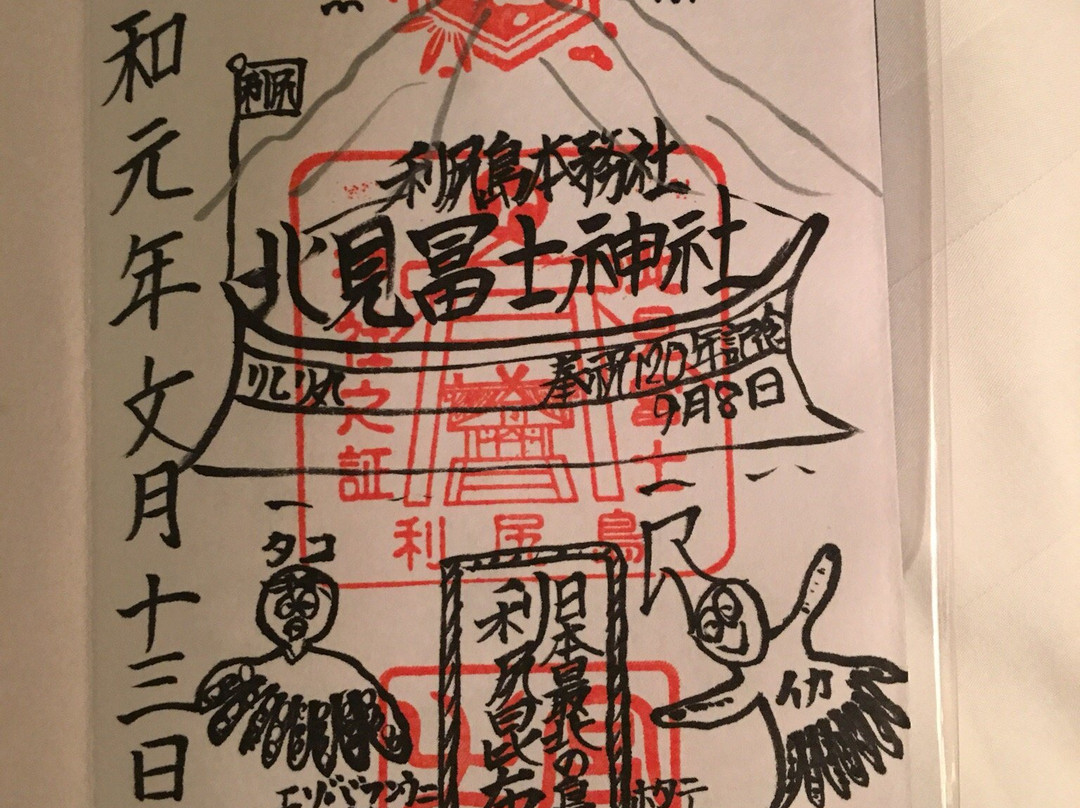 和元年文月十三日
利尻
利尻島本務社
北見冨士神社
りしり丸
奉祝120年記念
9月8日
之証
利尻島
タコ
イカ
日本最北の島
利尻昆布
エゾバフンウニ
ホタテ